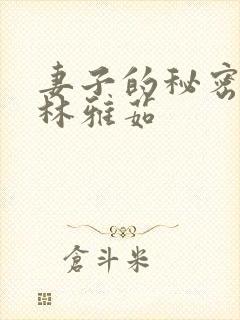 妻子的秘密
林雅茹
倉斗米